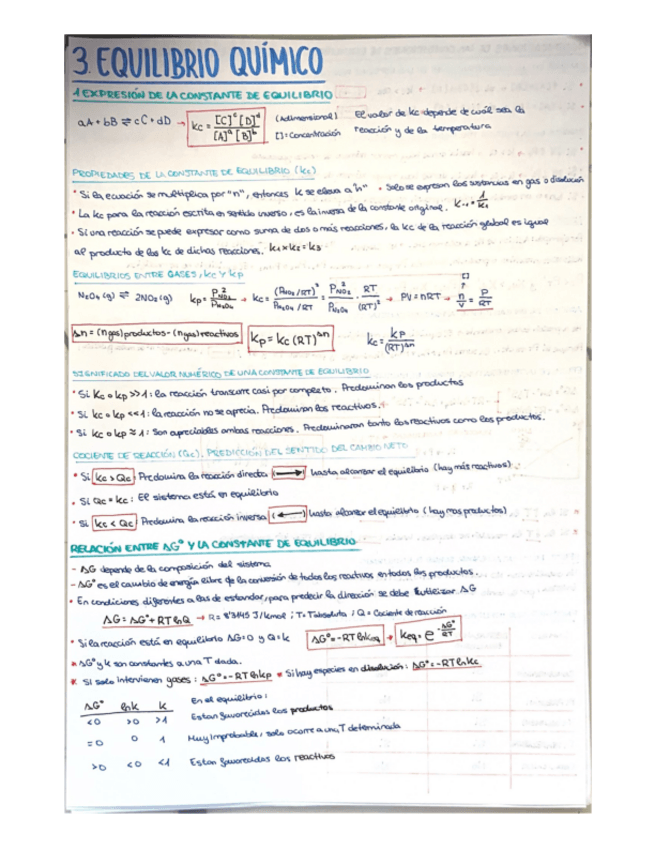 3. EQUILIBRIO QUÍMICO
1 EXPRESIÓN DE LA CONSTANTE DE EQUILIBRIO
aA + bB ⇌ cC + dD → Kc = [C]^c [D]^d / [A]^a [B]^b (Adimensional) El valor de kc depende de cuál sea la
[] = Concentración reacción y de la temperatura
PROPIEDADES DE LA CONSTANTE DE EQUILIBRIO (kc)
• Si la ecuación se multiplica por "n", entonces k se eleva a "n" • Solo se expresan las sustancias en gas o disolución
• La kc para la reacción escrita en sentido inverso, es la inversa de la constante original. K-1 = 1/K1
• Si una reacción se puede expresar como suma de dos o más reacciones, la kc de la reacción global es igual
al producto de las kc de dichas reacciones. k1 x k2 = k3
EQUILIBRIOS ENTRE GASES, kc Y kp
N2O4 (g) ⇌ 2NO2 (g) kp = P²NO2 / PN2O4 → kc = (PNO2/RT)² / PN2O4/RT = P²NO2 / PN2O4 · RT / (RT)² → PV = nRT → n/V = P/RT
[]
Δn = (n gas) productos - (n gas) reactivos kp = kc (RT)^Δn kc = kp / (RT)^Δn
SIGNIFICADO DEL VALOR NUMÉRICO DE UNA CONSTANTE DE EQUILIBRIO
• Si kc o kp >> 1: la reacción transcurre casi por completo. Predominan los productos
• Si kc o kp << 1: la reacción no se aprecia. Predominan los reactivos.
• Si kc o kp ≈ 1: Son apreciables ambas reacciones. Predominaran tanto los reactivos como los productos.
COCIENTE DE REACCIÓN (Qc). PREDICCIÓN DEL SENTIDO DEL CAMBIO NETO
• Si kc > Qc: Predomina la reacción directa (→) hasta alcanzar el equilibrio (hay más reactivos)
• Si Qc = kc: El sistema está en equilibrio
• Si kc < Qc: Predomina la reacción inversa (←) hasta alcanzar el equilibrio (hay mas productos)
RELACIÓN ENTRE ΔG° Y LA CONSTANTE DE EQUILIBRIO
- ΔG depende de la composición del sistema
- ΔG° es el cambio de energía libre de la conversión de todos los reactivos en todos los productos.
• En condiciones diferentes a las de estandar, para predecir la dirección se debe utilizar ΔG
ΔG = ΔG° + RT ln Q → R = 8'3145 J/kmol ; T = T absoluta ; Q = Cociente de reacción
• Si la reacción está en equilibrio ΔG = 0 y Q = k ΔG° = -RT ln keq → keq = e^-ΔG°/RT
* ΔG° y k son constantes a una T dada.
* Si solo intervienen gases: ΔG° = -RT ln kp * Si hay especies en disolución: ΔG° = -RT ln kc
ΔG° ln k k En el equilibrio:
<0 >0 >1 Estan favorecidos los productos
=0 0 1 Muy improbable, solo ocurre a una T determinada
>0 <0 <1 Estan favorecidos los reactivos